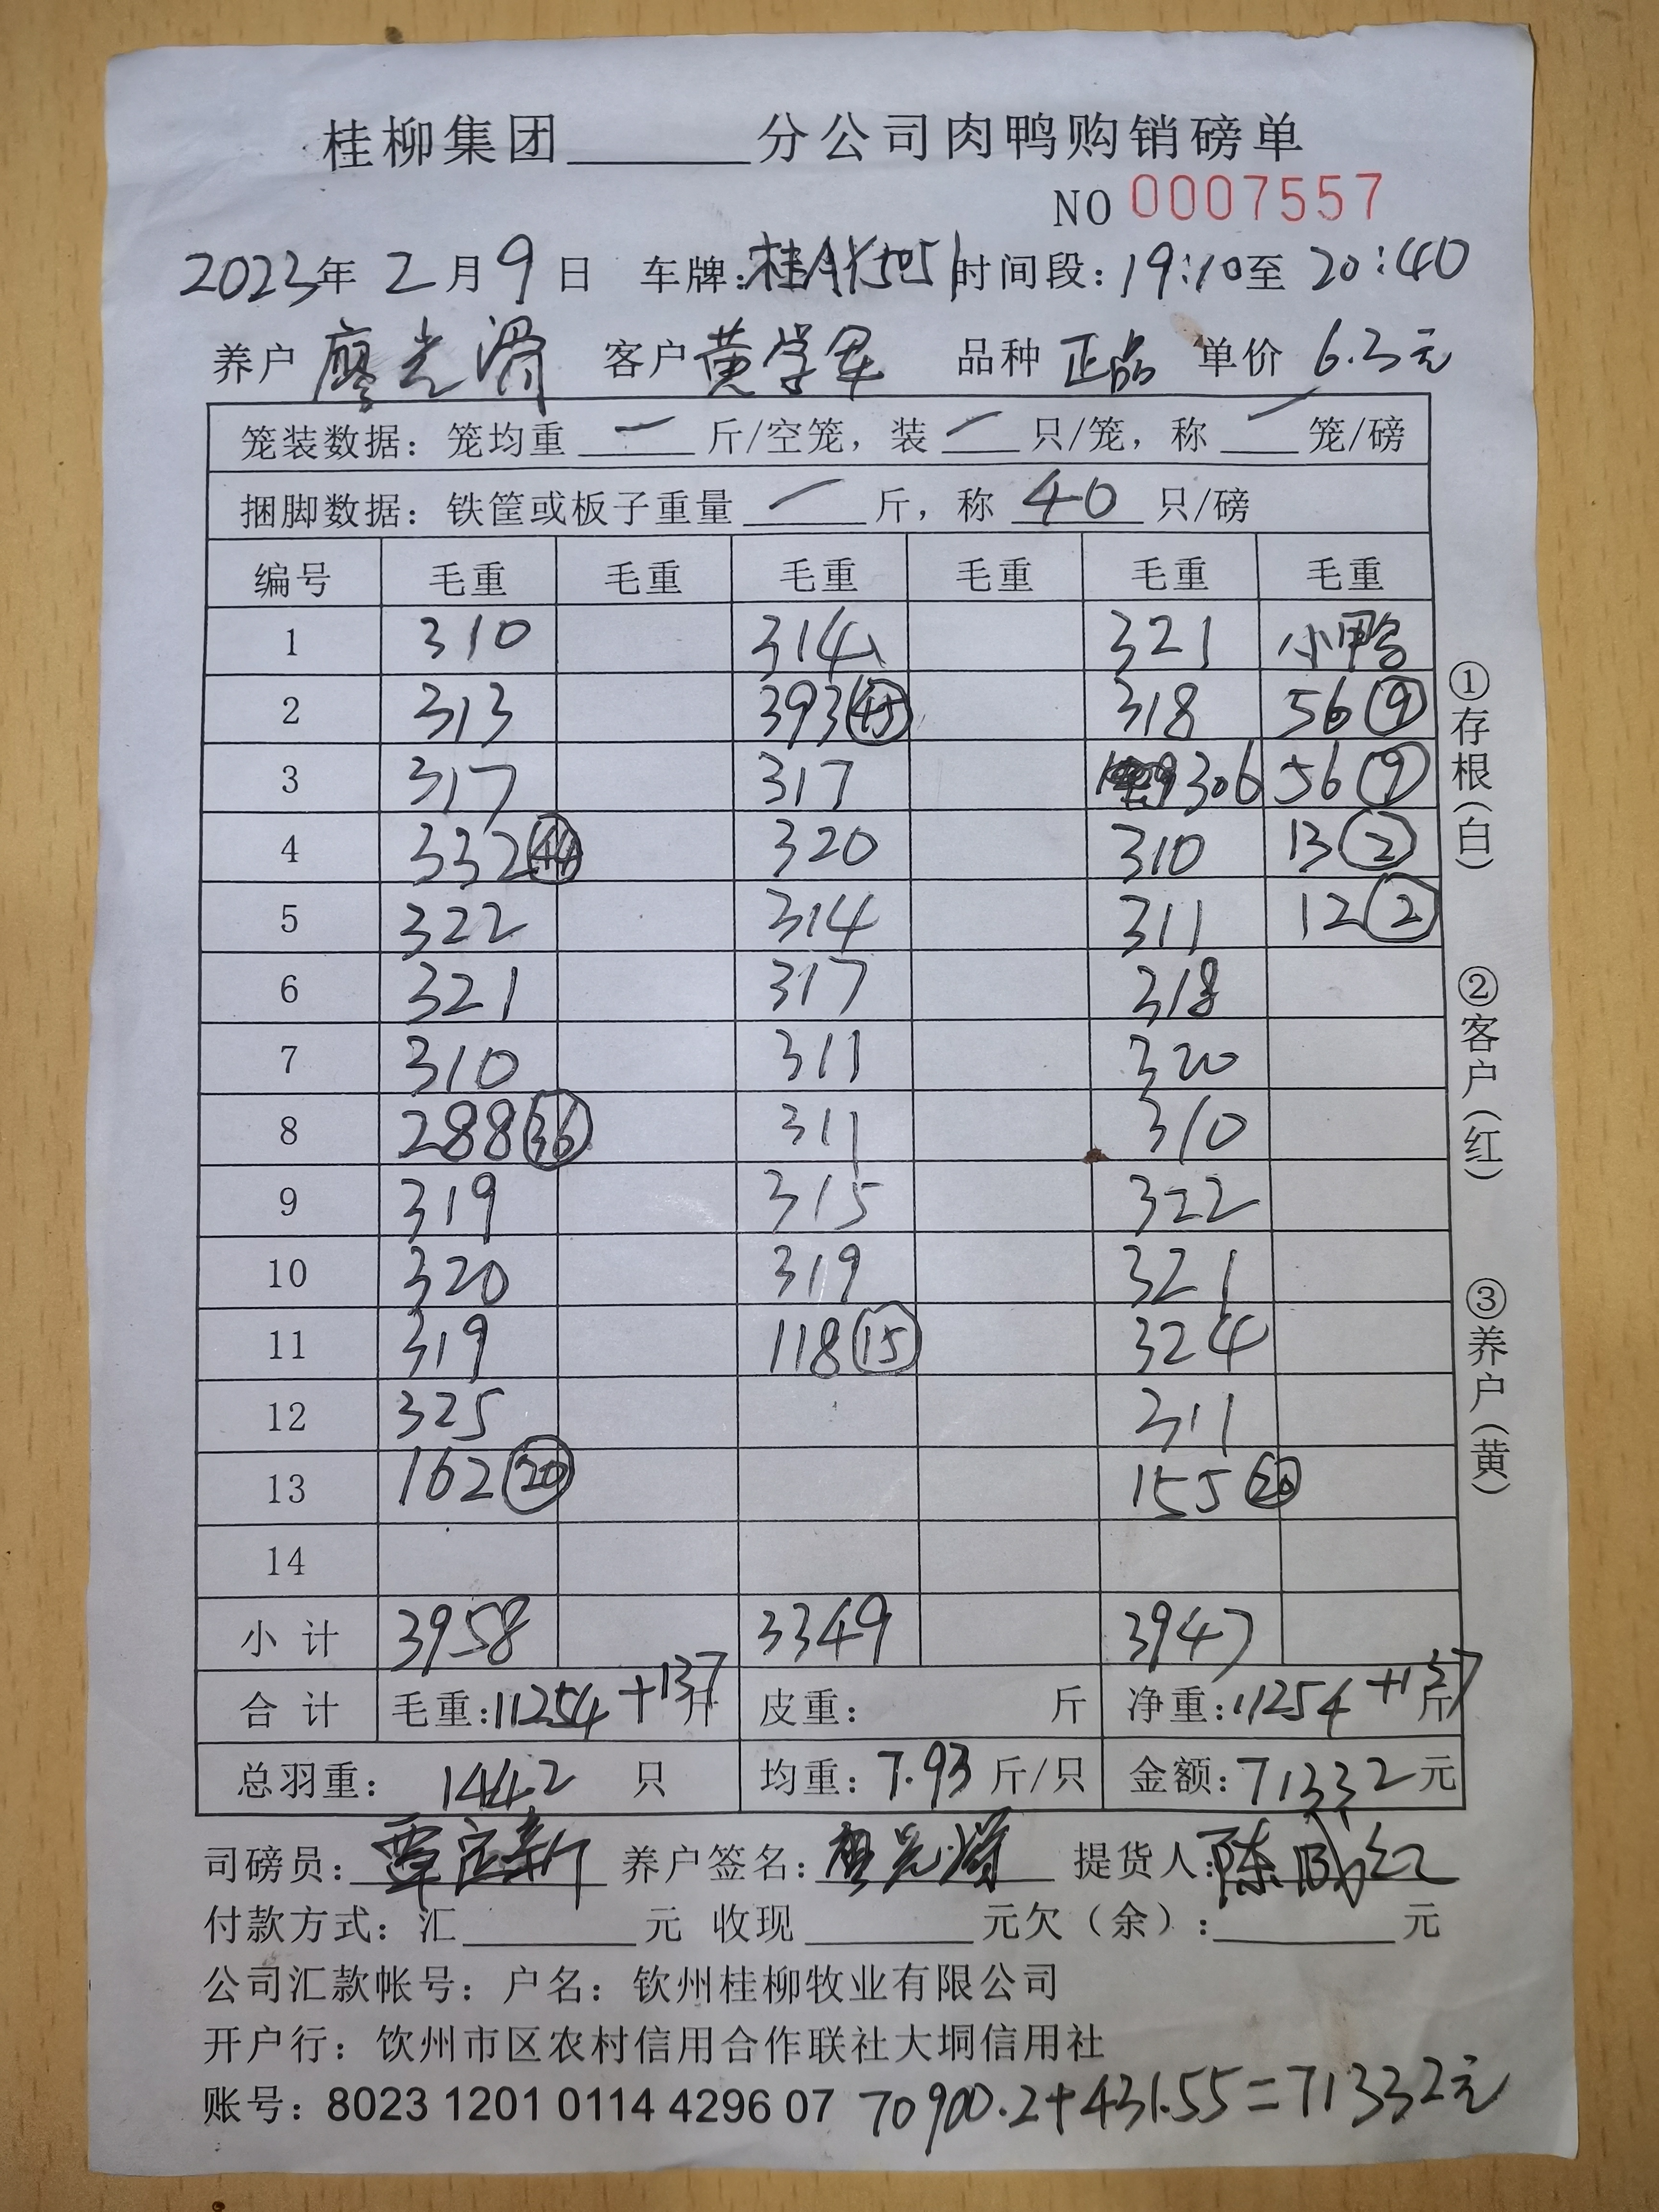 桂柳集团______分公司肉鸭购销磅单
NO 0007557
2023年 2月 9日 车牌:桂AY5051 时间段: 19:10至 20:40
养户 廖光滑 客户 黄学军 品种 正品 单价 6.3元
笼装数据: 笼均重 一 斤/空笼, 装 一 只/笼, 称 一 笼/磅
捆脚数据: 铁筐或板子重量 一 斤, 称 40 只/磅
编号 毛重 毛重 毛重 毛重 毛重 毛重
1 310 314 321 小鸭
2 313 393 (45) 318 56 (9)
3 317 317 306 56 (9)
4 332 320 310 13 (2)
5 322 314 311 12 (2)
6 321 317 318
7 310 311 320
8 288 (36) 311 310
9 319 315 322
10 320 319 321
11 319 118 (15) 324
12 325 311
13 162 (20) 155 (20)
14
小计 3958 3349 3947
合计 毛重:11254+137斤 皮重: 斤 净重:11254+137斤
总羽重: 1442 只 均重: 7.93 斤/只 金额: 71332元
司磅员: 养户签名: 提货人:
付款方式: 汇______元 收现______元欠(余):______元
公司汇款帐号: 户名: 钦州桂柳牧业有限公司
开户行: 钦州市区农村信用合作联社大垌信用社
账号: 8023 1201 0114 4296 07 70900.2+431.55=71332元
①存根(白) ②客户(红) ③养户(黄)